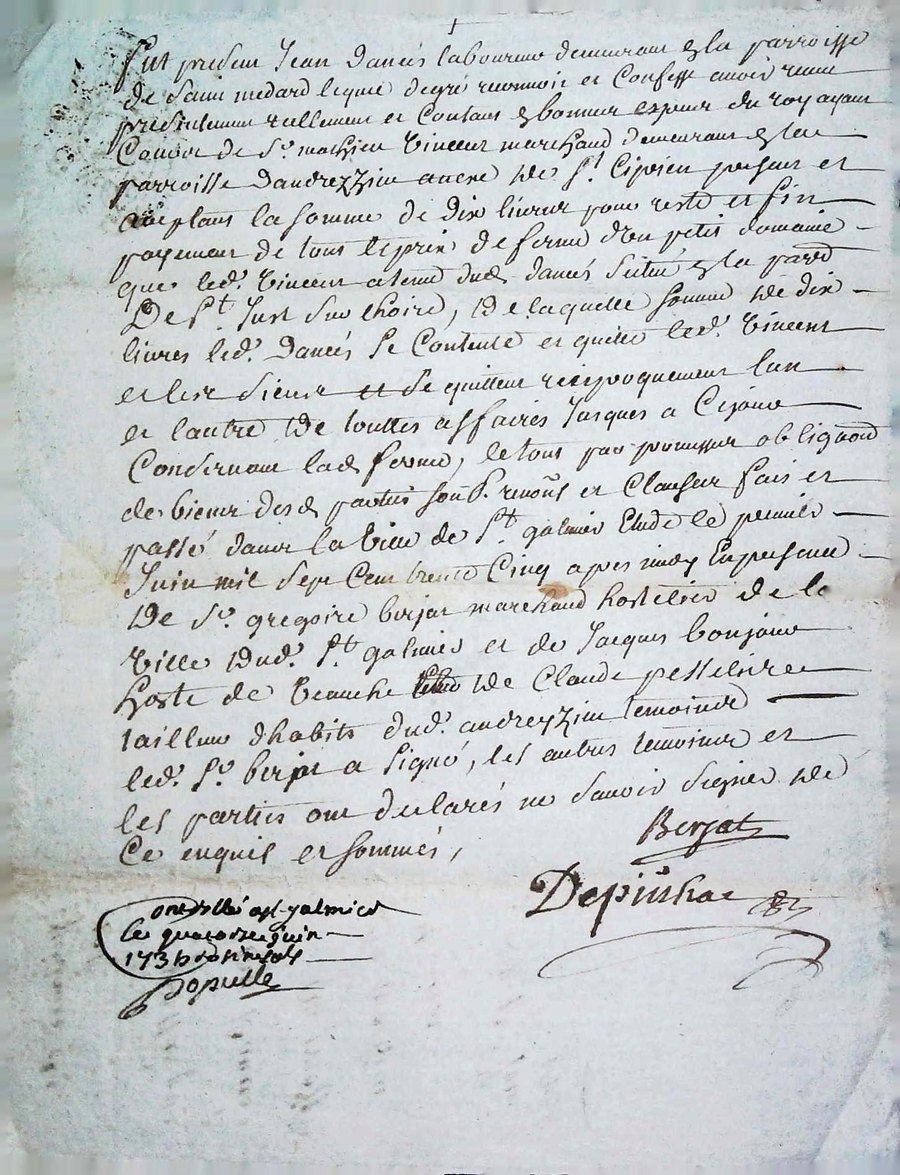 fut presens Jean dancés laboureur demeurant en la parroisse
de saint medard lequel de gré reconnoit et confesse avoir receu
presentement reellement et contant en bonnes especes du roy ayant
Cours de Sr. mathieu Vincent marchand demeurant en la
parroisse dandrezzieu anexe de St. Ciprien present et
aceptant la somme de dix livres pour reste et fin
payement de tous le prix de ferme d'un petit domaine
que led. Vincent a tenu dud. dancés situé en la parr.
De St. Just sur Loire, De laquelle somme De dix
livres led. Dancés se Contente et quitte led. Vincent
et les siens et se quittent reciproquement lun
et lautre De touttes affaires Jusques a Cejour
Consernant lad. ferme, le tous par promesses obligaon
de biens desd. parties soub. renons. et Clauses fait et
passé dans la Ville de St. galmier Etude le premier
Juin mil sept Cent trente Cinq apres midy En presence
De Sr. gregoire berjat marchand hostelier de la
Ville Dud. St. galmier et de Jacques bonjour
hoste de Veauche De Claude pesselier
tailleur dhabits dud. andrezzieu temoins
led. Sr. berjat a signé, les autres temoins et
les parties ont declarés ne savoir signer De
Ce enquis et sommés,
Berjat
Depinhac
Controllé a St. galmier
le quatorze juin
1735
Populle